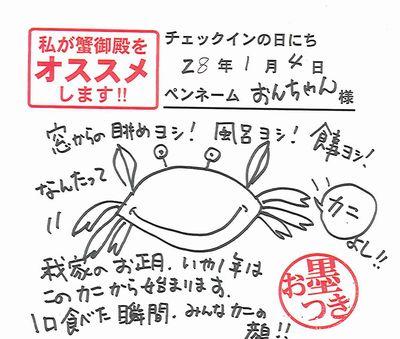 私が蟹御殿を
オススメ
します!!
チェックインの日にち
28年1月4日
ペンネーム おんちゃん 様
窓からの眺めヨシ! 風呂ヨシ! 食事ヨシ!
なんたって
カニ
よし!!
我家のお正月、いや1年は
このカニから始まります。
1口食べた瞬間、みんなカニの
顔!!
お墨
つき